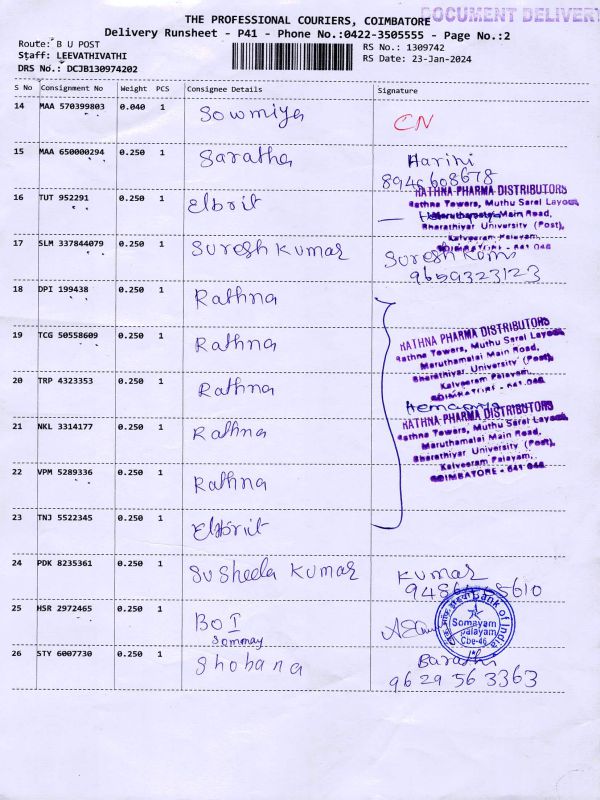 THE PROFESSIONAL COURIERS, COIMBATORE
DOCUMENT DELIVERY
Delivery Runsheet - P41 - Phone No.:0422-3505555 - Page No.:2
Route: B U POST
RS No.: 1309742
Staff: LEEVATHIVATHI
RS Date: 23-Jan-2024
DRS No.: DCJB130974202
S No Consignment No Weight PCS Consignee Details Signature
14 MAA 570399803 0.040 1 Sowmiya CN
15 MAA 650000294 0.250 1 Saratha Harini
8946608678
16 TUT 952291 0.250 1 Elbrit
RATHNA PHARMA DISTRIBUTORS
Rathna Towers, Muthu Saral Layout,
Maruthamalai Main Road,
Bharathiyar University (Post),
Kalveeram Palayam,
COIMBATORE - 641 046
17 SLM 337844079 0.250 1 Suresh Kumar Suresh Kumar
9659323123
18 DPI 199438 0.250 1 Rathna
19 TCG 50558609 0.250 1 Rathna
RATHNA PHARMA DISTRIBUTORS
Rathna Towers, Muthu Saral Layout,
Maruthamalai Main Road,
Bharathiyar University (Post),
Kalveeram Palayam,
COIMBATORE - 641 046
20 TRP 4323353 0.250 1 Rathna
Hemapriya
21 NKL 3314177 0.250 1 Rathna
RATHNA PHARMA DISTRIBUTORS
Rathna Towers, Muthu Saral Layout,
Maruthamalai Main Road,
Bharathiyar University (Post),
Kalveeram Palayam,
COIMBATORE - 641 046
22 VPM 5289336 0.250 1 Rathna
23 TNJ 5522345 0.250 1 Elbrit
24 PDK 8235361 0.250 1 Susheela Kumar Kumar
25 HSR 2972465 0.250 1 BOI
Bank of India
Somayam
palayam
Cbe-46
26 STY 6007730 0.250 1 Shobana Barathi
9629563363